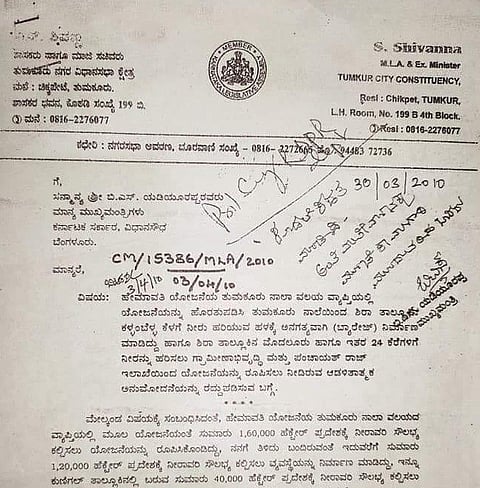 ಎಸ್. ಶಿವಣ್ಣ
ಶಾಸಕರು ಹಾಗೂ ಮಾಜಿ ಸಚಿವರು
ತುಮಕೂರು ನಗರ ವಿಧಾನಸಭಾ ಕ್ಷೇತ್ರ
ಮನೆ : ಚಿಕ್ಕಪೇಟೆ, ತುಮಕೂರು.
ಶಾಸಕರ ಭವನ, ಕೊಠಡಿ ಸಂಖ್ಯೆ 199 ಬಿ.
ಮನೆ : 0816-2276077
MEMBER
S. Shivanna
M.L.A. & Ex. Minister
TUMKUR CITY CONSTITUENCY,
Resi : Chikpet, TUMKUR,
L.H. Room, No. 199 B 4th Block.
Resi : 0816-2276077
ಕಛೇರಿ : ನಗರಸಭಾ ಆವರಣ, ದೂರವಾಣಿ ಸಂಖ್ಯೆ - 0816- 2272665 94483 72736
30/03/2010
ಗೆ,
ಸನ್ಮಾನ್ಯ ಶ್ರೀ ಬಿ.ಎಸ್. ಯಡಿಯೂರಪ್ಪರವರು
ಮಾನ್ಯ ಮುಖ್ಯಮಂತ್ರಿಗಳು
ಕರ್ನಾಟಕ ಸರ್ಕಾರ, ವಿಧಾನಸೌಧ
ಬೆಂಗಳೂರು.
ಮಾನ್ಯರೆ,
CM/15386/MLA/2010
3/4/10 03/04/10
ವಿಷಯ: ಹೇಮಾವತಿ ಯೋಜನೆಯ ತುಮಕೂರು ನಾಲಾ ವಲಯ ವ್ಯಾಪ್ತಿಯಲ್ಲಿ
ಯೋಜನೆಯನ್ನು ಹೊರತುಪಡಿಸಿ ತುಮಕೂರು ನಾಲೆಯಿಂದ ಶಿರಾ ತಾಲ್ಲೂಕಿನ
ಕಳ್ಳಂಬೆಳ್ಳ ಕೆಳಗೆ ನೀರು ಹರಿಯುವ ಹಳಕ್ಕೆ ಅನಗತ್ಯವಾಗಿ (ಬ್ಯಾರೇಜ್) ನಿರ್ಮಾಣ
ಮಾಡಿದ್ದು ಹಾಗೂ ಶಿರಾ ತಾಲ್ಲೂಕಿನ ಮೊದಲೂರು ಹಾಗೂ ಇತರ 24 ಕೆರೆಗಳಿಗೆ
ನೀರನ್ನು ಹರಿಸಲು ಗ್ರಾಮೀಣಾಭಿವೃದ್ಧಿ ಮತ್ತು ಪಂಚಾಯತ್ ರಾಜ್
ಇಲಾಖೆಯಿಂದ ಯೋಜನೆಯನ್ನು ರೂಪಿಸಲು ನೀಡಿರುವ ಆಡಳಿತಾತ್ಮಕ
ಅನುಮೋದನೆಯನ್ನು ರದ್ದುಪಡಿಸುವ ಬಗ್ಗೆ.
ಮೇಲ್ಕಂಡ ವಿಷಯಕ್ಕೆ ಸಂಬಂಧಿಸಿದಂತೆ, ಹೇಮಾವತಿ ಯೋಜನೆಯ ತುಮಕೂರು ನಾಲಾ ವಲಯದ
ವ್ಯಾಪ್ತಿಯಲ್ಲಿ ಮೂಲ ಯೋಜನೆಯಂತೆ ಸುಮಾರು 1,60,000 ಹೆಕ್ಟೇರ್ ಪ್ರದೇಶಕ್ಕೆ ನೀರಾವರಿ ಸೌಲಭ್ಯ
ಕಲ್ಪಿಸಲು ಯೋಜನೆಯನ್ನು ರೂಪಿಸಿಕೊಂಡಿದ್ದು, ನನಗೆ ತಿಳಿದು ಬಂದಿರುವಂತೆ ಇದುವರೆಗೆ ಸುಮಾರು
1,20,000 ಹೆಕ್ಟೇರ್ ಪ್ರದೇಶಕ್ಕೆ ನೀರಾವರಿ ಸೌಲಭ್ಯ ಕಲ್ಪಿಸಲು ವ್ಯವಸ್ಥೆಯನ್ನು ನಿರ್ಮಾಣ ಮಾಡಿದ್ದು, ಇನ್ನೂ
ಕುಣಿಗಲ್ ತಾಲ್ಲೂಕಿನಲ್ಲಿ ಬರುವ ಸುಮಾರು 40,000 ಹೆಕ್ಟೇರ್ ಪ್ರದೇಶಕ್ಕೆ ನೀರಾವರಿ ಸೌಲಭ್ಯ ಕಲ್ಪಿಸಲು